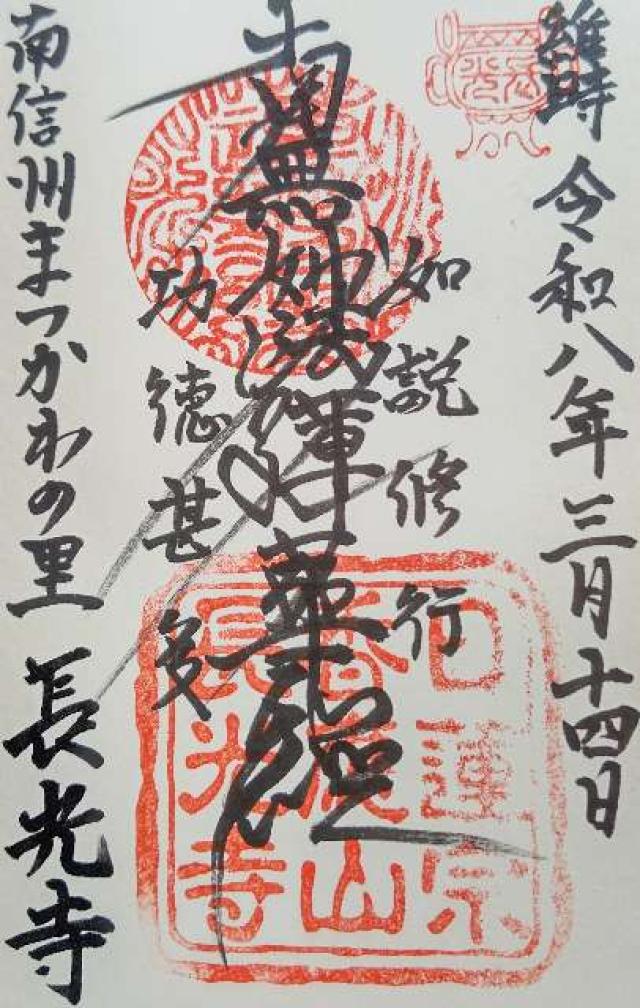 維時 令和八年三月十四日
如説修行
南無妙法蓮華經
功徳甚多
南信州まつかわの里 長光寺
日蓮宗
香山
長光寺